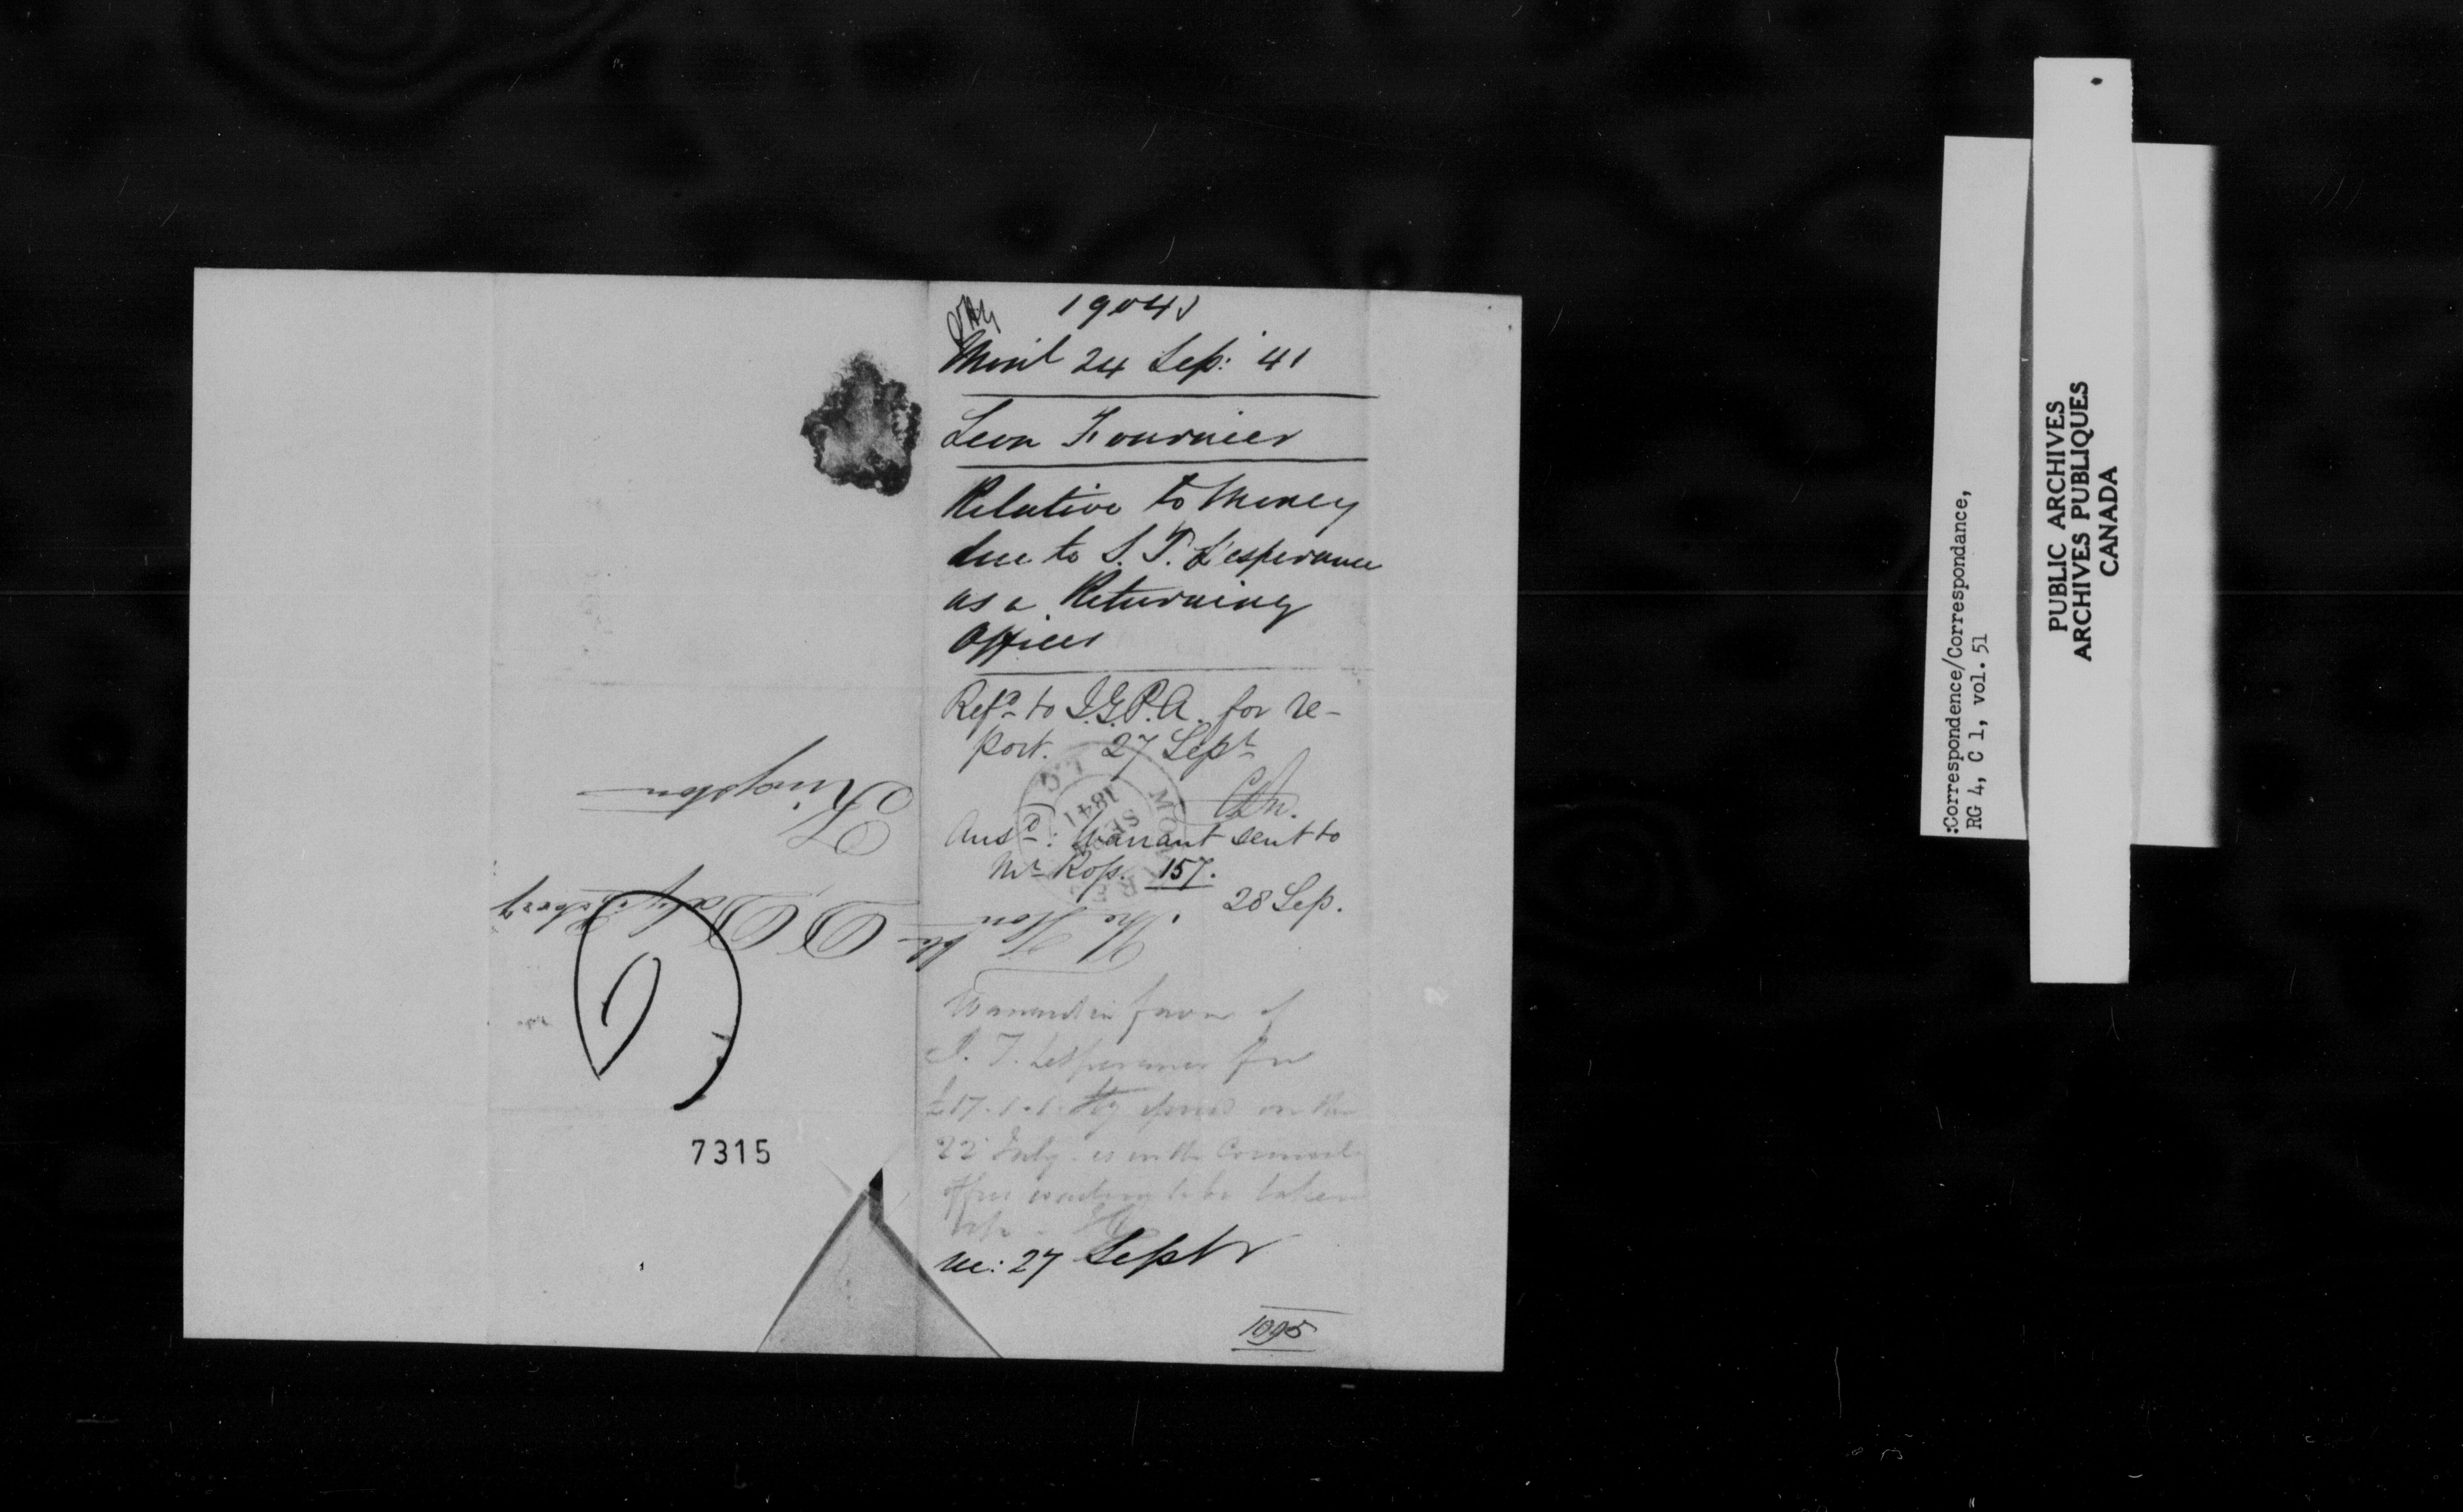 1904
Mont 24 Sep: 41
Leon Fournier
Relative to Money
due to S. T. L'esperance
as a Returning
Officer
Refd to I.G.P.A. for re-
port. 27 Sept
Ansd: Warrant sent to
Mr Ross. 157.
28 Sep.
Warrant in favor of
T. Lesperance for
£17.1.1. Stg on the
22 July is in the Council
office to be taken
up
rec: 27 Septr
1095
The Honble D Daly
Kingston
MONTREAL L.C.
SP
1841
7315
:Correspondence/Correspondance,
RG 4, C 1, vol. 51
PUBLIC ARCHIVES
ARCHIVES PUBLIQUES
CANADA